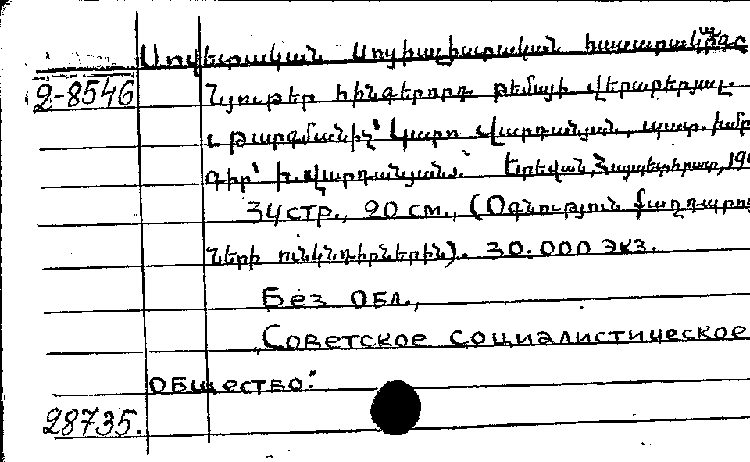 Սովետական սոցիալիստական հասարակ
2-8546
Նյութեր հինգերորդ թեմայի վերաբերյալ.
և թարգմանիչ՝ Կարո Վարդանյան, պատ. խմբ
գիր՝ Խ. Վարդանյան։ Երեվան, Հայպետհրատ, 19
34 стр., 20 см., (Օգնություն քաղդպրոց
ների ունկնդիրներին). 30.000 экз.
Без обл.,
„Советское социалистическое
общество."
28735.